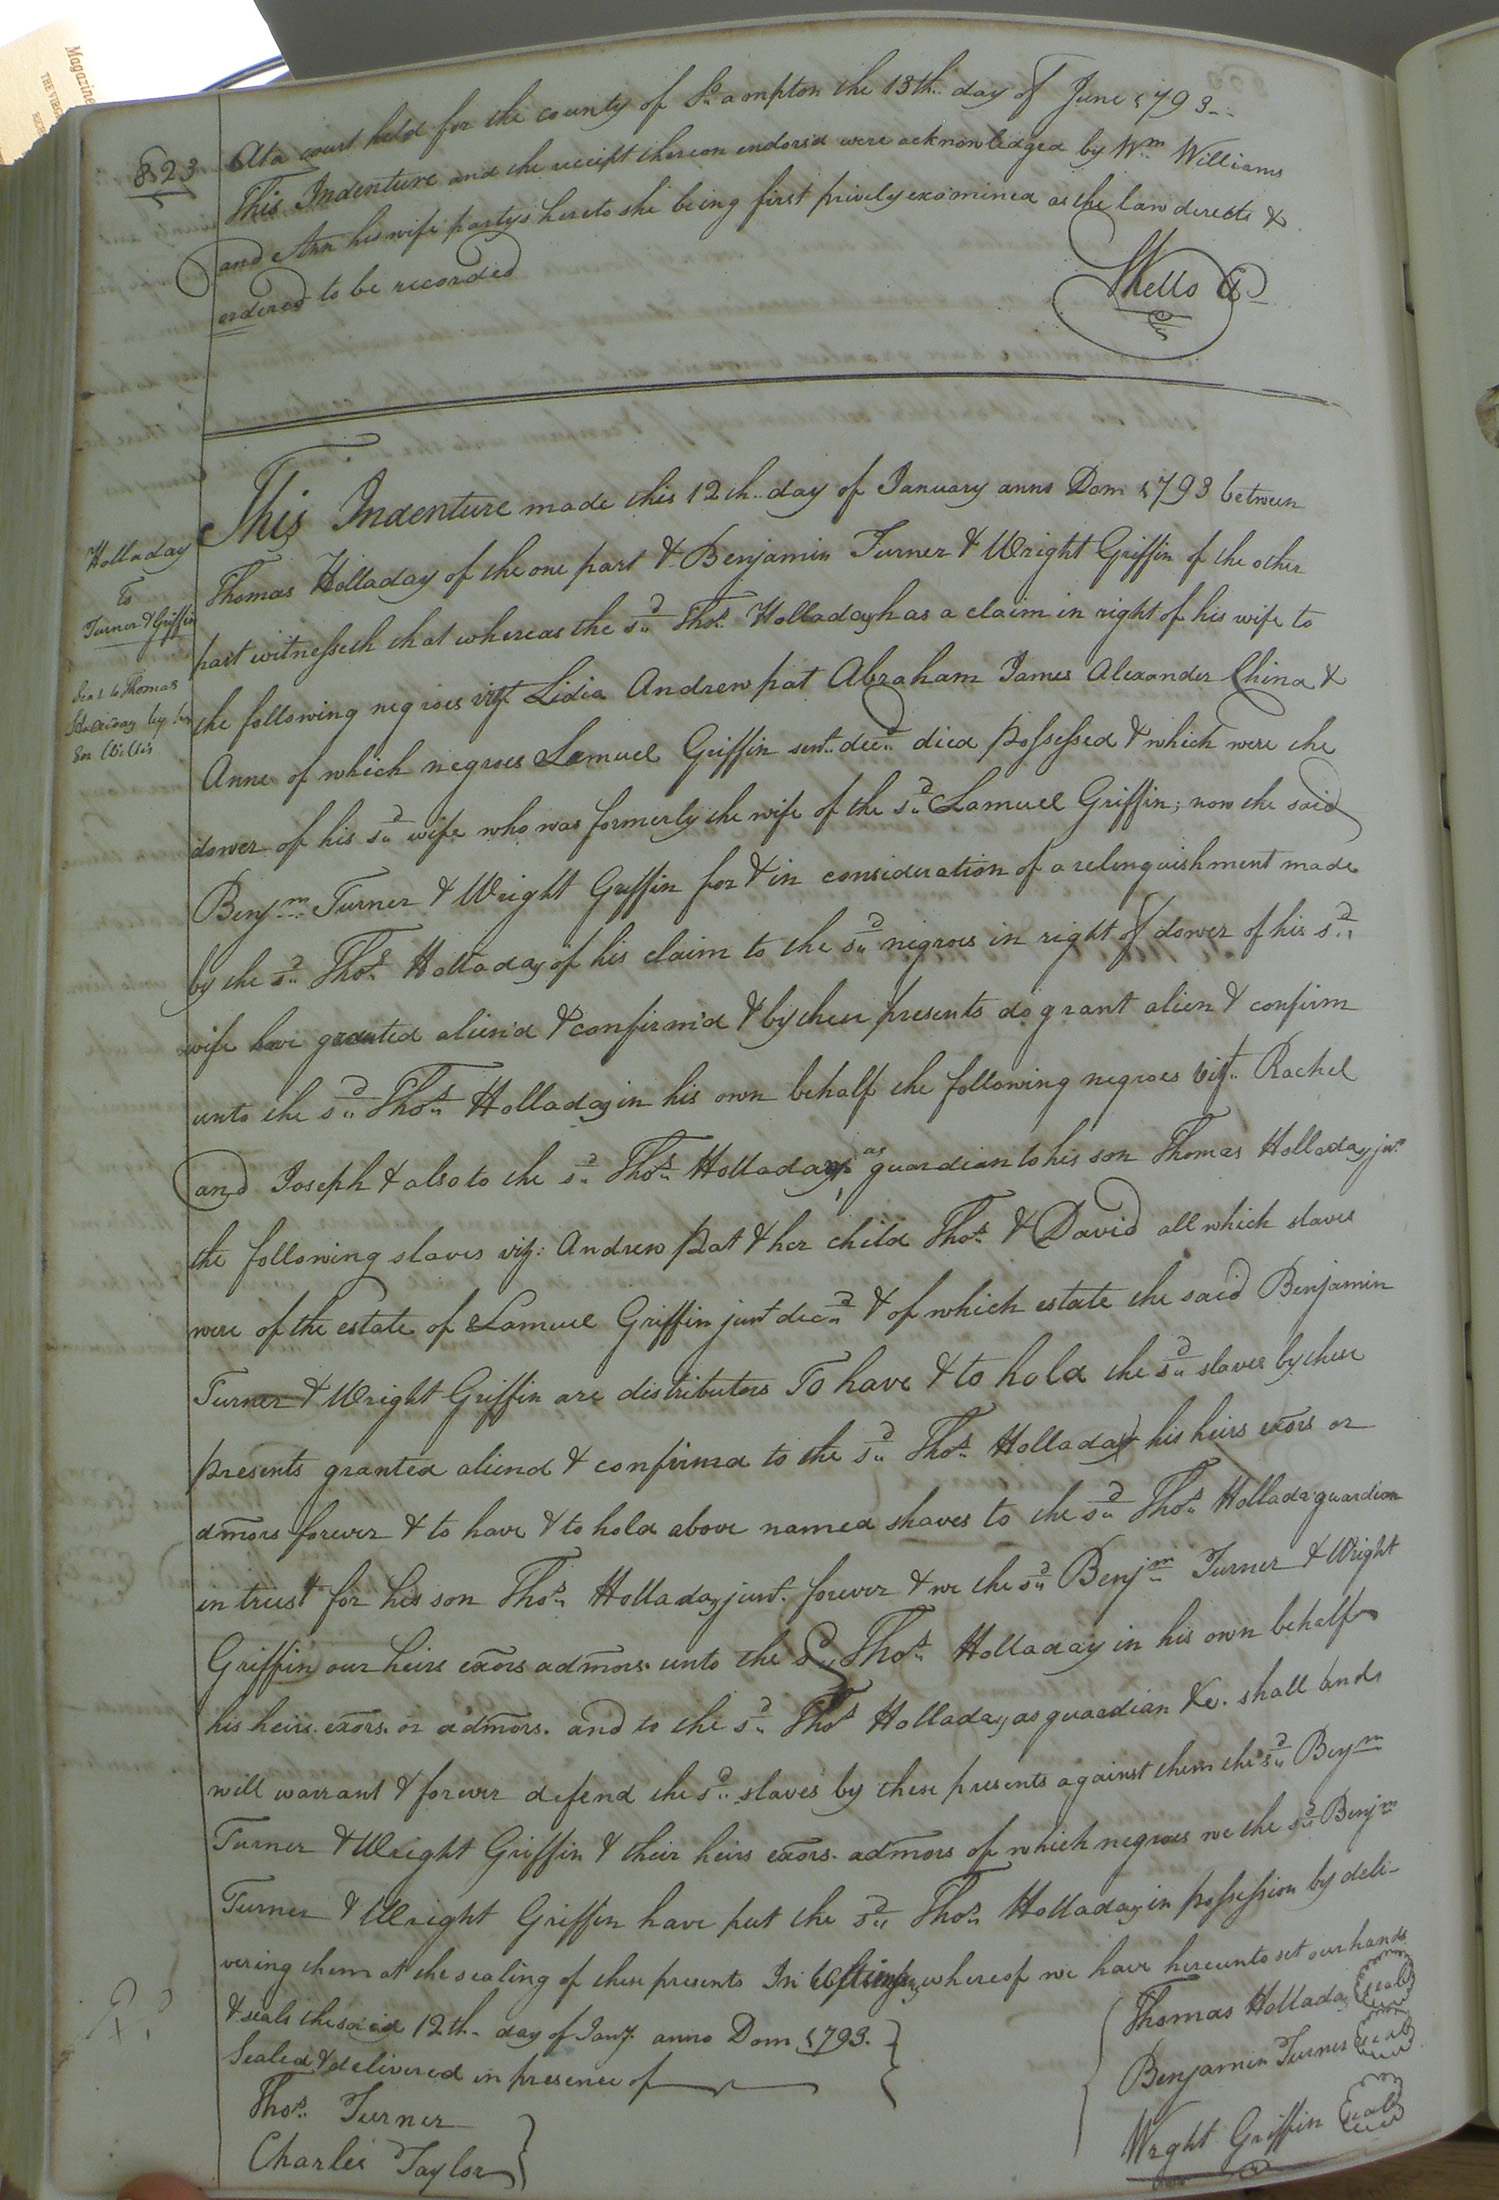 Magazine
823
At a court held for the county of S:ampton the 13th. day of June 1793--
This Indenture and the receipt thereon endorsd were acknowledged by Wm. Williams
and Ann his wife partys hereto she being first privily examined as the law directs &
ordered to be recorded
SKello Ct
Holladay
to
Turner & Griffin
This Indenture made this 12th.. day of January anno Dom 1793 between
Thomas Holladay of the one part & Benjamin Turner & Wright Griffin of the other
part witnesseth that whereas the sd. Thos. Holladay has a claim in right of his wife to
the following negroes vizt Lidia Andrew pat Abraham James Alexander China &
Anne of which negroes Lemuel Griffin senr. decd. died possessed & which were the
dower of his sd. wife who was formerly the wife of the sd. Lamuel Griffin; now the said
Benjm. Turner & Wright Griffin for & in consideration of a relinquishment made
by the sd. Thos. Holladay of his claim to the sd. negroes in right of dower of his sd.
wife have granted alien'd & confirm'd & by these presents do grant alien & confirm
unto the sd. Thos. Holladay in his own behalf the following negroes vizt. Rachel
and Joseph & also to the sd. Thos. Holladay as guardian to his son Thomas Holladay junr
the following slaves viz: Andrew pat & her child Thos. & David all which slaves
were of the estate of Lamuel Griffin junr decd. & of which estate the said Benjamin
Turner & Wright Griffin are distributors To have & to hold the sd. slaves by these
presents granted aliend & confirmed to the sd. Thos. Holladay his heirs exors or
admors forever & to have & to hold above named shaves to the sd. Thos. Holladay guardian
in trust for his son Thos. Holladay junr. forever & we the sd. Benjm. Turner & Wright
Griffin our heirs exors admors. unto the sd. Thos. Holladay in his own behalf
his heirs. exors. or admors. and to the sd. Thos Holladay as guardian &c. shall and
will warrant & forever defend the sd. slaves by these presents against them the sd. Benjm
Turner & Wright Griffin & their heirs exors. admors of which negroes we the sd. Benjm
Turner & Wright Griffin have put the sd. Thos. Holladay in possession by deli-
vering them at the sealing of these presents In whereof we have hereunto set our hands
& seals the said 12th. day of Jany. anno Dom 1793.
Sealed & delivered in presence of
Thos. Turner
Charles Taylor
Thomas Holladay seal
Benjamin Turner seal
Wright Griffin seal